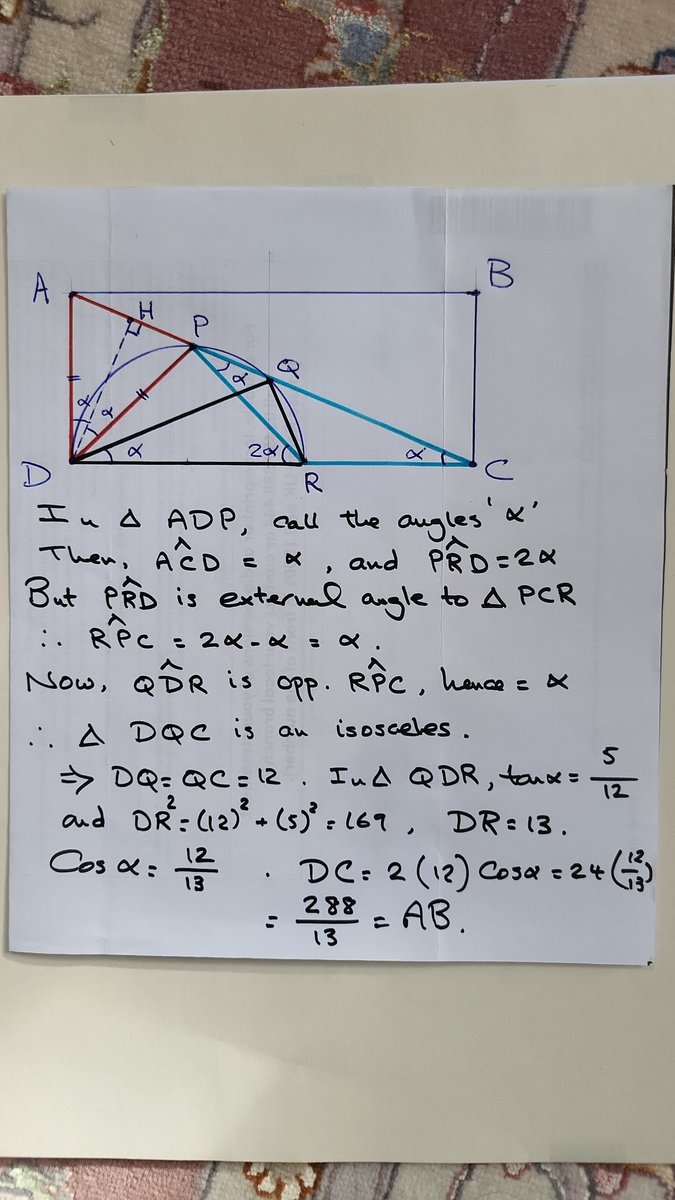 A
B
H
P
Q
α
α
α
α
2α
α
D
R
C
In △ ADP, call the angles 'α'
Then, AĈD = α , and PR̂D = 2α
But PR̂D is external angle to △ PCR
∴ RP̂C = 2α - α = α .
Now, QD̂R is opp. RP̂C , hence = α
∴ △ DQC is an isosceles.
⇒ DQ = QC = 12 . In △ QDR, tanα = 5/12
and DR² = (12)² + (5)² = 169 , DR = 13 .
Cos α = 12/13 . DC = 2 (12) Cosα = 24 (12/13)
= 288/13 = AB .